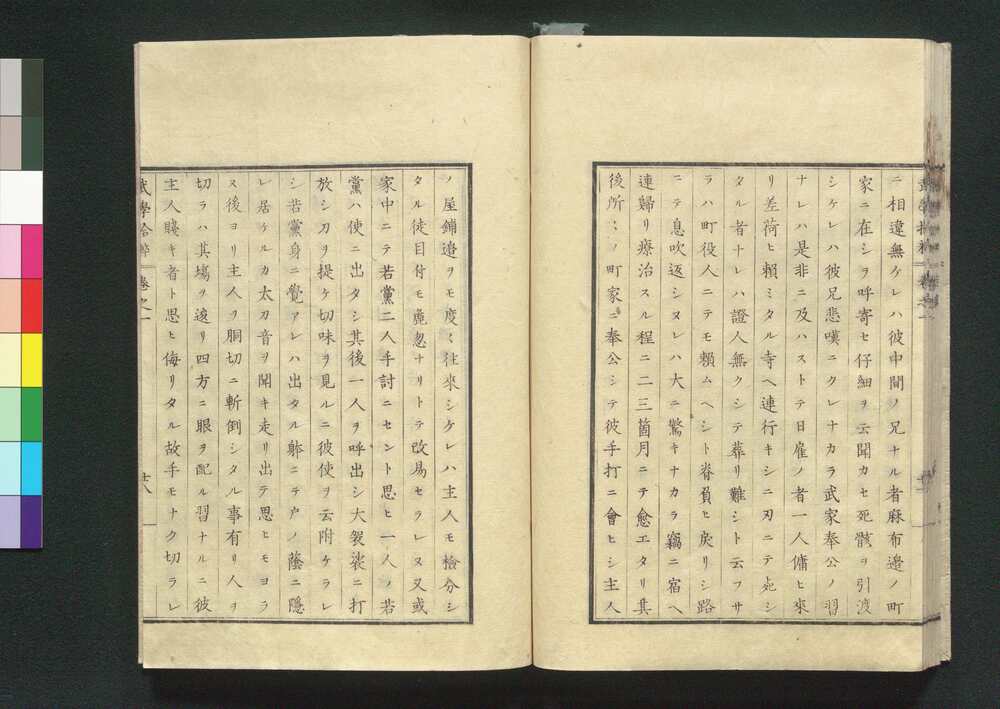 ニ相違無ケレハ彼中間ノ兄ナル者麻布邉ノ町
家ニ在シヲ呼寄セ仔細ヲ云聞カセ死骸ヲ引渡
シケレハ彼兄悲嘆ニクレナカラ武家奉公ノ習
ナレハ是非ニ及ハストテ日雇ノ者一人傭ヒ來
リ差荷ヒ頼ミタル寺ヘ連行キシニ刃ニテ死シ
タル者ナレハ證人無クシテ葬リ難シト云フサ
ラハ町役人ニテモ頼ムヘシト脊負ヒ戻リシ路
ニテ息吹返シヌレハ大ニ驚キナカラ竊ニ宿ヘ
連歸リ療治スル程ニ二三箇月ニテ愈エタリ其
後所〻ノ町家ニ奉公シテ彼手打ニ會ヒシ主人
ノ屋鋪邉ヲモ度〻往來シケレハ主人モ檢分シ
タル徒目付モ麁忽ナリトテ改易セラレヌ又或
家中ニテ若黨二人手討ニセント思ヒ一人ノ若
黨ハ使ニ出タシ其後一人ヲ呼出シ大袈裟ニ打
放シ刀ヲ提ケ切味ヲ見ルニ彼使ヲ云附ケラレ
シ若黨身ニ覺アレハ出タル躰ニテ戸ノ蔭ニ隱
レ居ケルカ太刀音ヲ聞キ走リ出テ思ヒモヨラ
ス後ヨリ主人ヲ胴切ニ斬倒シタル事有リ人ヲ
切ラハ其塲ヲ逡リ四方ニ眼ヲ配ル習ナルニ彼
主人賤キ者ト思ヒ侮リタル故手モナク切ラレ
武學拾粹 卷之一 廿八